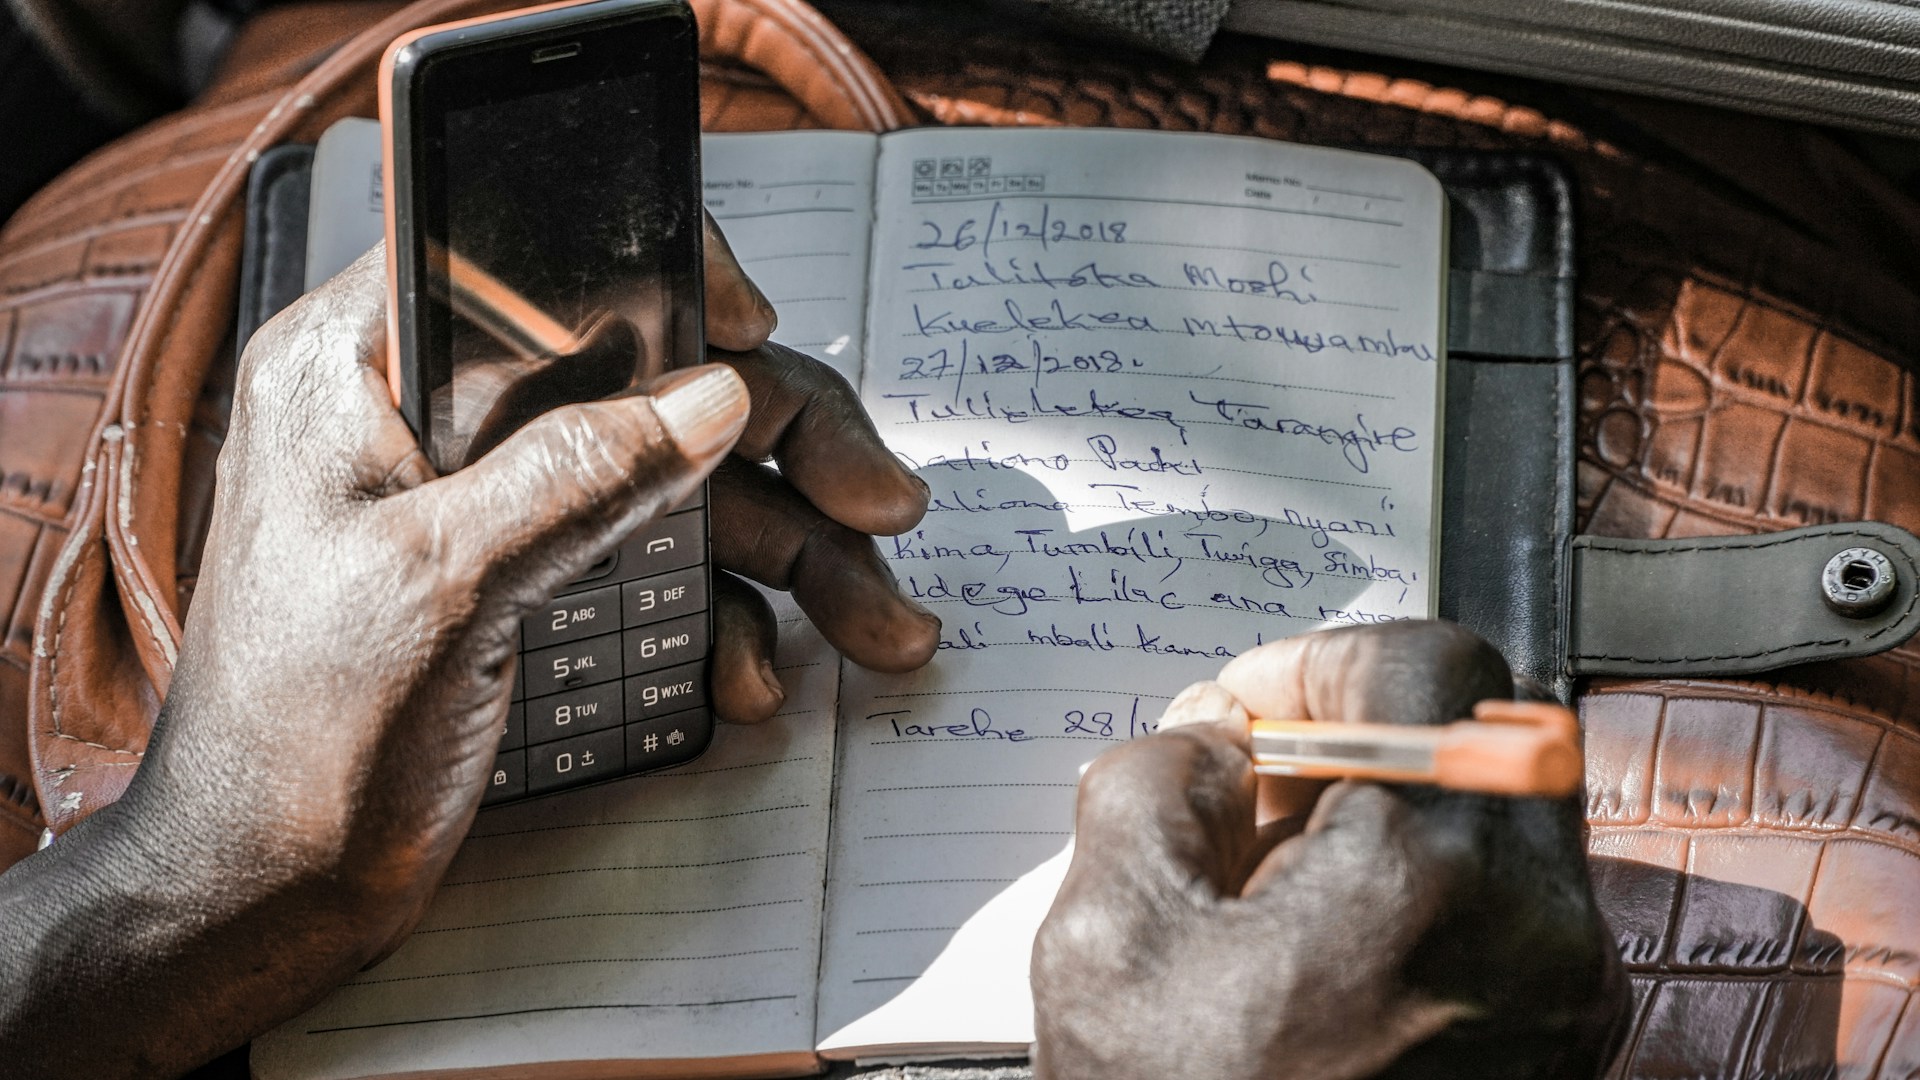 Memo No.
Date / /
Mo Tu We Th Fr Sa Su
26/12/2018
Tulitoka Moshi
Kuelekea mtowambu
27/12/2018.
Tulielekea Tarangire
National Park
Tuliona Tembo, nyani
Kima, Tumbili, Twiga, Simba,
Ndege Lilac ana rangi
mbali mbali kama
Tarehe 28/1
2 ABC
3 DEF
5 JKL
6 MNO
8 TUV
9 WXYZ
0 ±
#